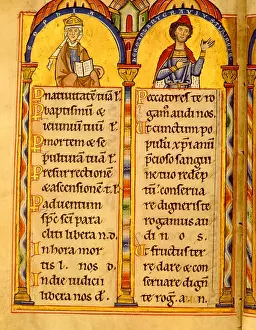 SOPHIA
P nativitatē tuā l.
P baptismū &
ieiuniū tuū l.
P mortem & se
pulturā tuā l.
P resurrectionē
& ascensionē t. l.
P adventum
sp̄c sc̄i para
cliti libera n. d.
In hora mor
tis l. nos d.
In die iudicii
libera nos d.
Peccatores te ro
gam̄ audi nos.
Ut cunctum po
pulū xp̄ianū
p̄cioso sangui
ne tuo redēp
tū conserva
re digneris te
rogamus audi
nos.
Ut fructus ter
re dare & con
servare digni
te rog. a. n.